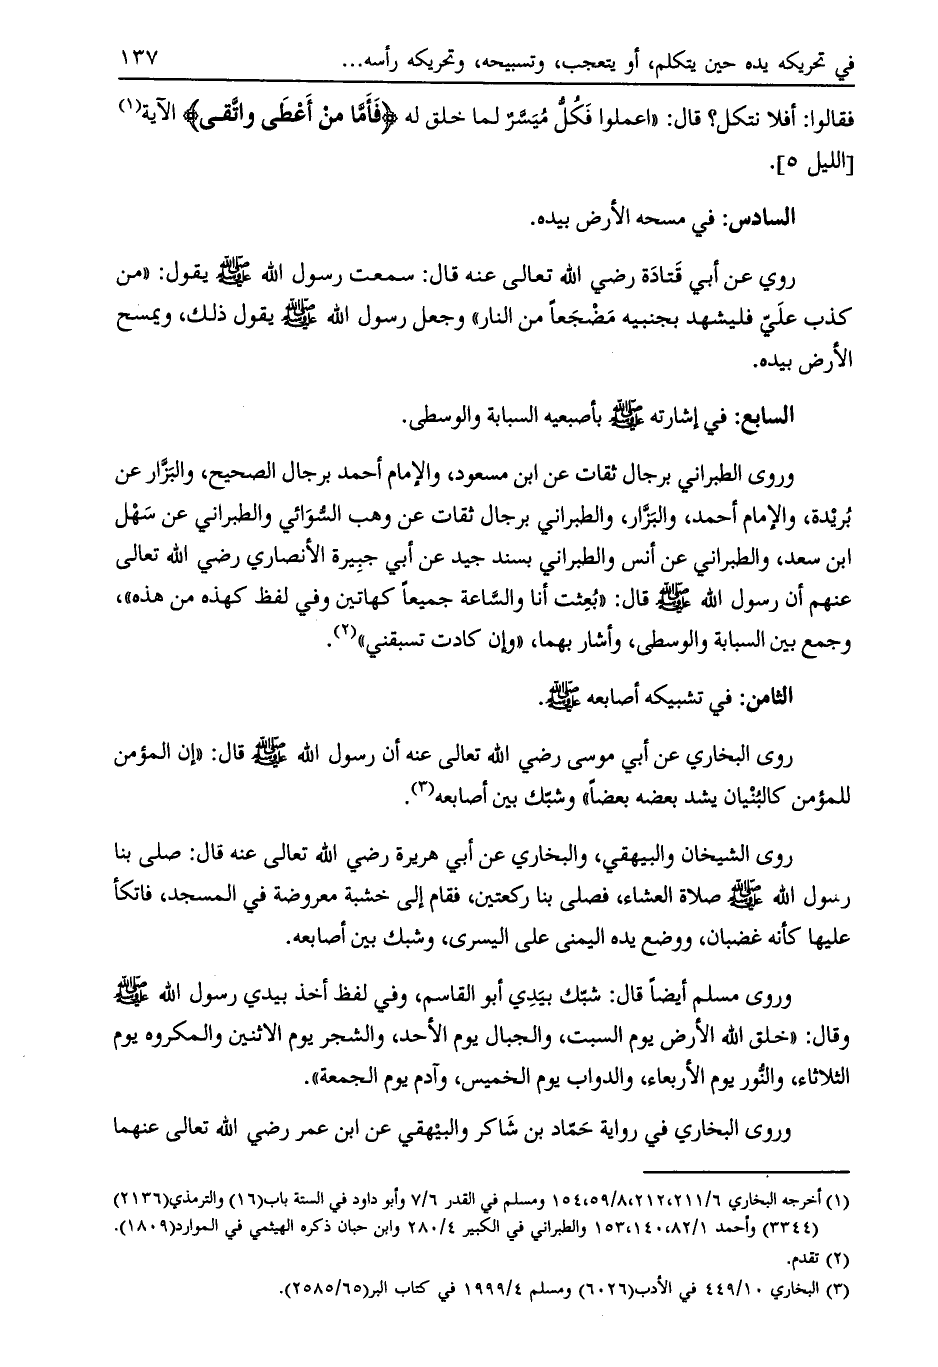 في تحريكه يده حين يتكلم، أو يتعجب، وتسبيحه، وتحريكه رأسه... ١٣٧
فقالوا: أفلا نتكل؟ قال: «اعملوا فَكُلٌّ مُيَسَّرٌ لما خلق له ﴿فَأَمَّا منْ أَعْطَى واتَّقى﴾ الآية(١)
[الليل ٥].
السادس: في مسحه الأرض بيده.
روي عن أبي قَتادَة رضي الله تعالى عنه قال: سمعت رسول الله ﷺ يقول: «من
كذب علَيّ فليشهد بجنبيه مَضْجَعاً من النار» وجعل رسول الله ﷺ يقول ذلك، ويمسح
الأرض بيده.
السابع: في إشارته ﷺ بأصبعيه السبابة والوسطى.
وروى الطبراني برجال ثقات عن ابن مسعود، والإمام أحمد برجال الصحيح، والبَزَّار عن
بُريْدة، والإمام أحمد، والبَزَّار، والطبراني برجال ثقات عن وهب السُّوَائي والطبراني عن سَهْل
ابن سعد، والطبراني عن أنس والطبراني بسند جيد عن أبي جبِيرة الأنصاري رضي الله تعالى
عنهم أن رسول الله ﷺ قال: «بُعِثت أنا والسَّاعة جميعاً كهاتين وفي لفظ كهذه من هذه»،
وجمع بين السبابة والوسطى، وأشار بهما، «وإن كادت تسبقني»(٢).
الثامن: في تشبيكه أصابعه ﷺ.
روى البخاري عن أبي موسى رضي الله تعالى عنه أن رسول الله ﷺ قال: «إن المؤمن
للمؤمن كالبُنْيان يشد بعضه بعضاً» وشبّك بين أصابعه(٣).
روى الشيخان والبيهقي، والبخاري عن أبي هريرة رضي الله تعالى عنه قال: صلى بنا
رسول الله ﷺ صلاة العشاء، فصلى بنا ركعتين، فقام إلى خشبة معروضة في المسجد، فاتكأ
عليها كأنه غضبان، ووضع يده اليمنى على اليسرى، وشبك بين أصابعه.
وروى مسلم أيضاً قال: شبّك بيَدِي أبو القاسم، وفي لفظ أخذ بيدي رسول الله ﷺ
وقال: «خلق الله الأرض يوم السبت، والجبال يوم الأحد، والشجر يوم الاثنين والمكروه يوم
الثلاثاء، والنُّور يوم الأربعاء، والدواب يوم الخميس، وآدم يوم الجمعة».
وروى البخاري في رواية حَمّاد بن شَاكر والبيْهقي عن ابن عمر رضي الله تعالى عنهما
(١) أخرجه البخاري ٢١١/٦،٢١٢،٥٩/٨،١٥٤ ومسلم في القدر ٧/٦ وأبو داود في الستة باب(١٦) والترمذي(٢١٣٦)
(٣٣٤٤) وأحمد ٨٢/١،١٤٠،١٥٣ والطبراني في الكبير ٢٨٠/٤ وابن حبان ذكره الهيثمي في الموارد(١٨٠٩).
(٢) تقدم.
(٣) البخاري ٤٤٩/١٠ في الأدب(٦٠٢٦) ومسلم ١٩٩٩/٤ في كتاب البر(٢٥٨٥/٦٥).